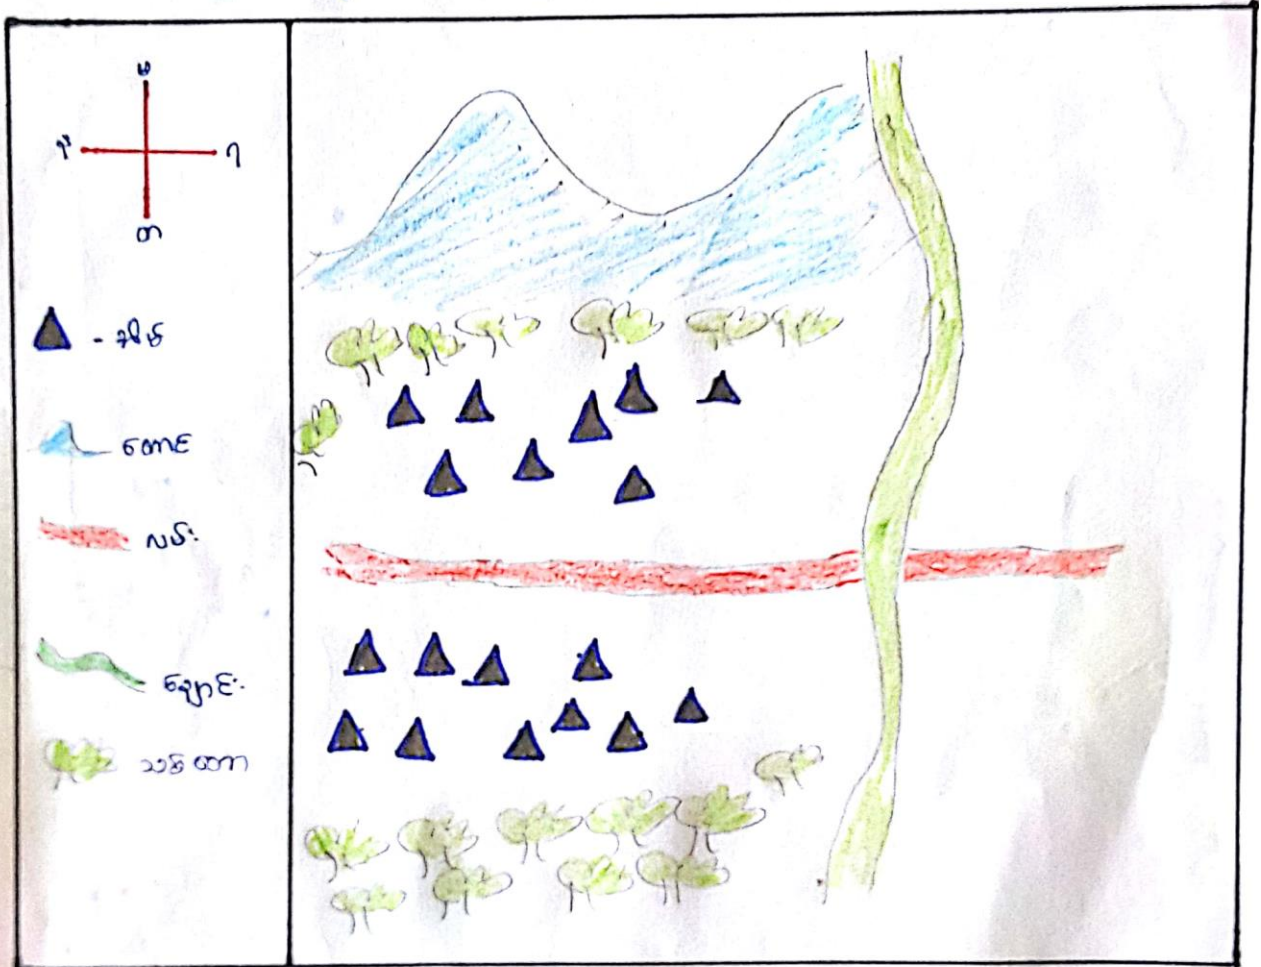 မ
ရှေ့
ရ
တ
- အိမ်
တောင်
လမ်း
ချောင်း
သစ်တော